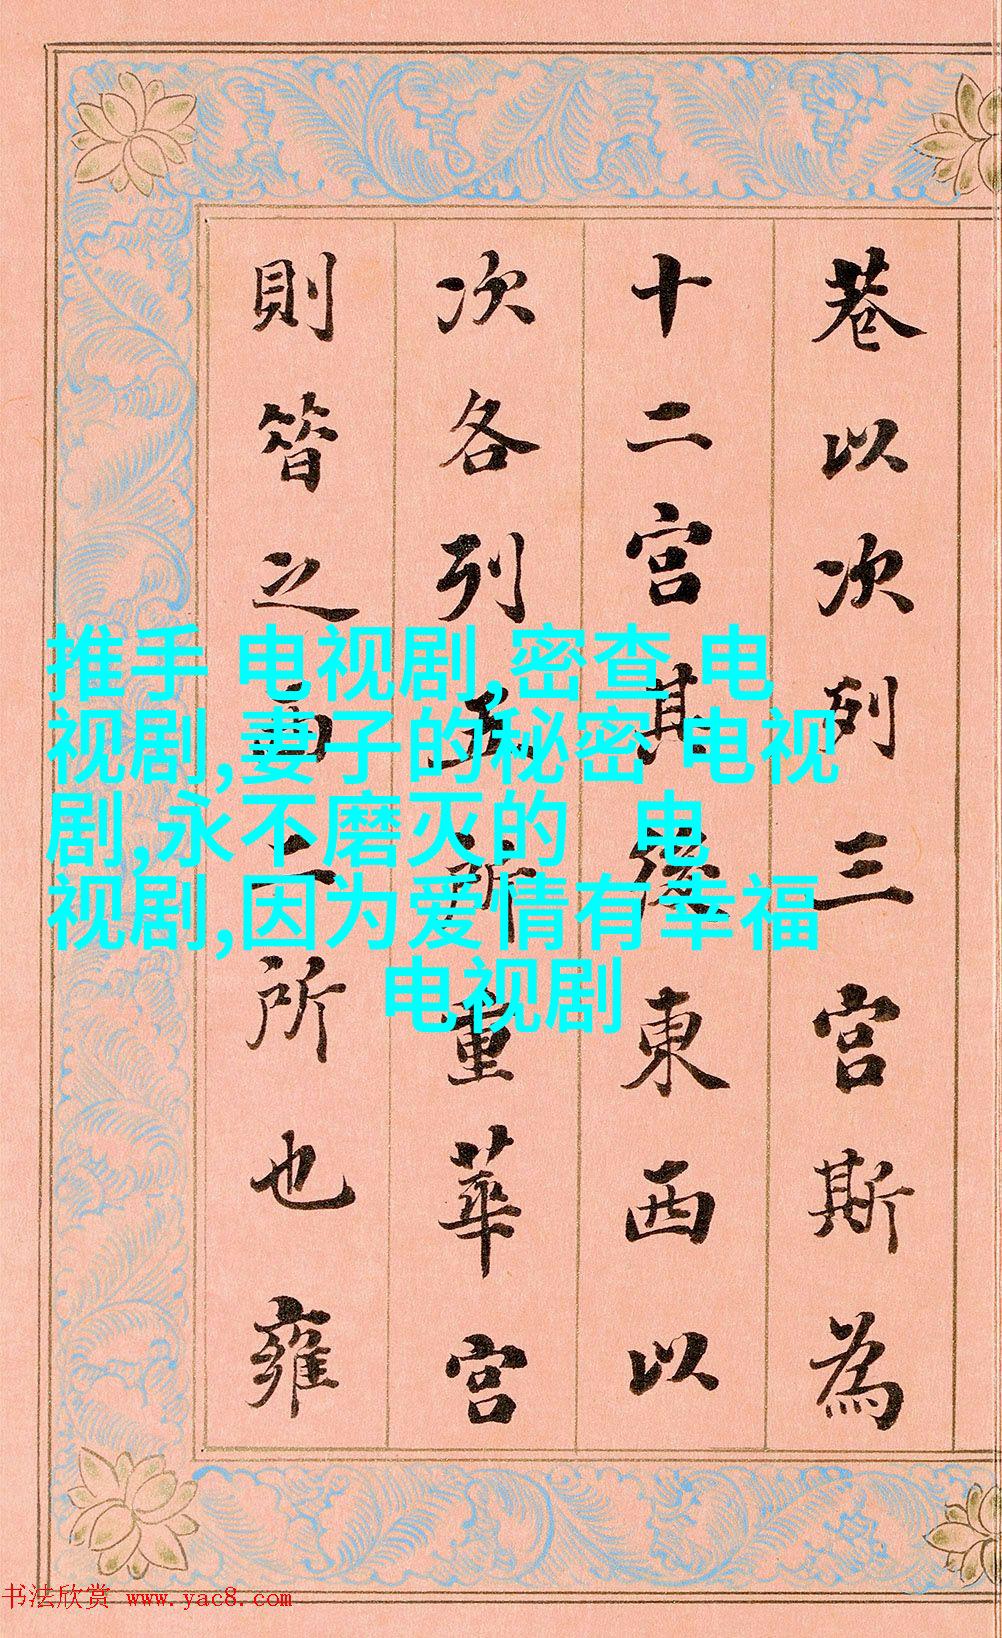 巷以次列三宮斯為
十二宮其後東西以
次各列五所重華宮
則昔之西二所也雍
推手 电视剧,密查 电
视剧,妻子的秘密 电视
剧,永不磨灭的   电
视剧,因为爱情有幸福
电视剧
书法欣赏 www.yac8.com